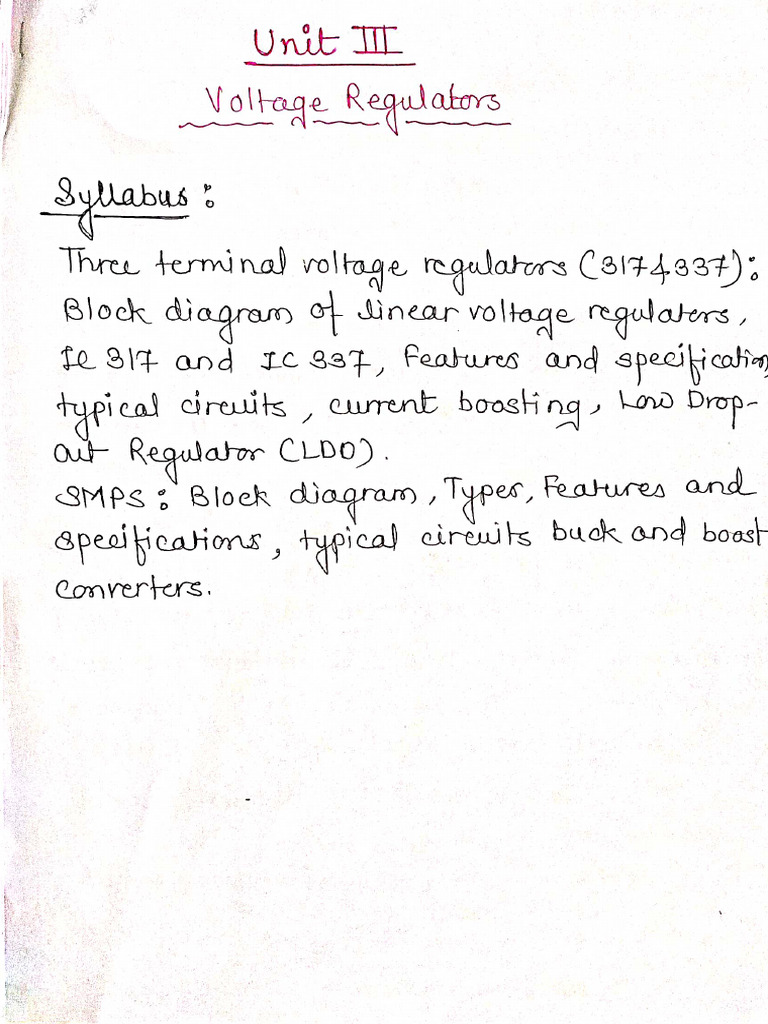 Unit III
Voltage Regulators
Syllabus :
Three terminal voltage regulators (317 & 337):
Block diagram of linear voltage regulators,
IC 317 and IC 337, Features and specification
typical circuits, current boosting, Low Drop-
out Regulator (LDO).
SMPS: Block diagram, Types, Features and
specifications, typical circuits buck and boost
converters.